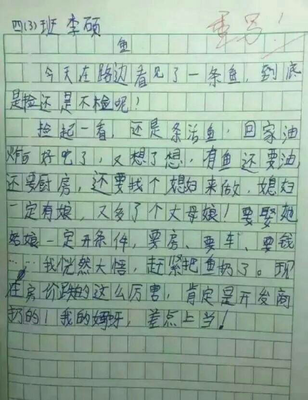 四(3)班 李硕
重写!
鱼
今天在路边看见了一条鱼，到底
是捡还是不检呢！
捡起一看，还是条活鱼，回家油
炸百好吃了，又想了想，有鱼还要油，
还要厨房，还要找个媳妇来做，媳妇
一定有娘，又多了个丈母娘！要娶她
姑娘一定开条件，要房、要车、要钱
……我恍然大悟，赶紧把鱼扔了。现
在房价跌的这么厉害，肯定是开发商
扔的！我的妈呀，差点上当！